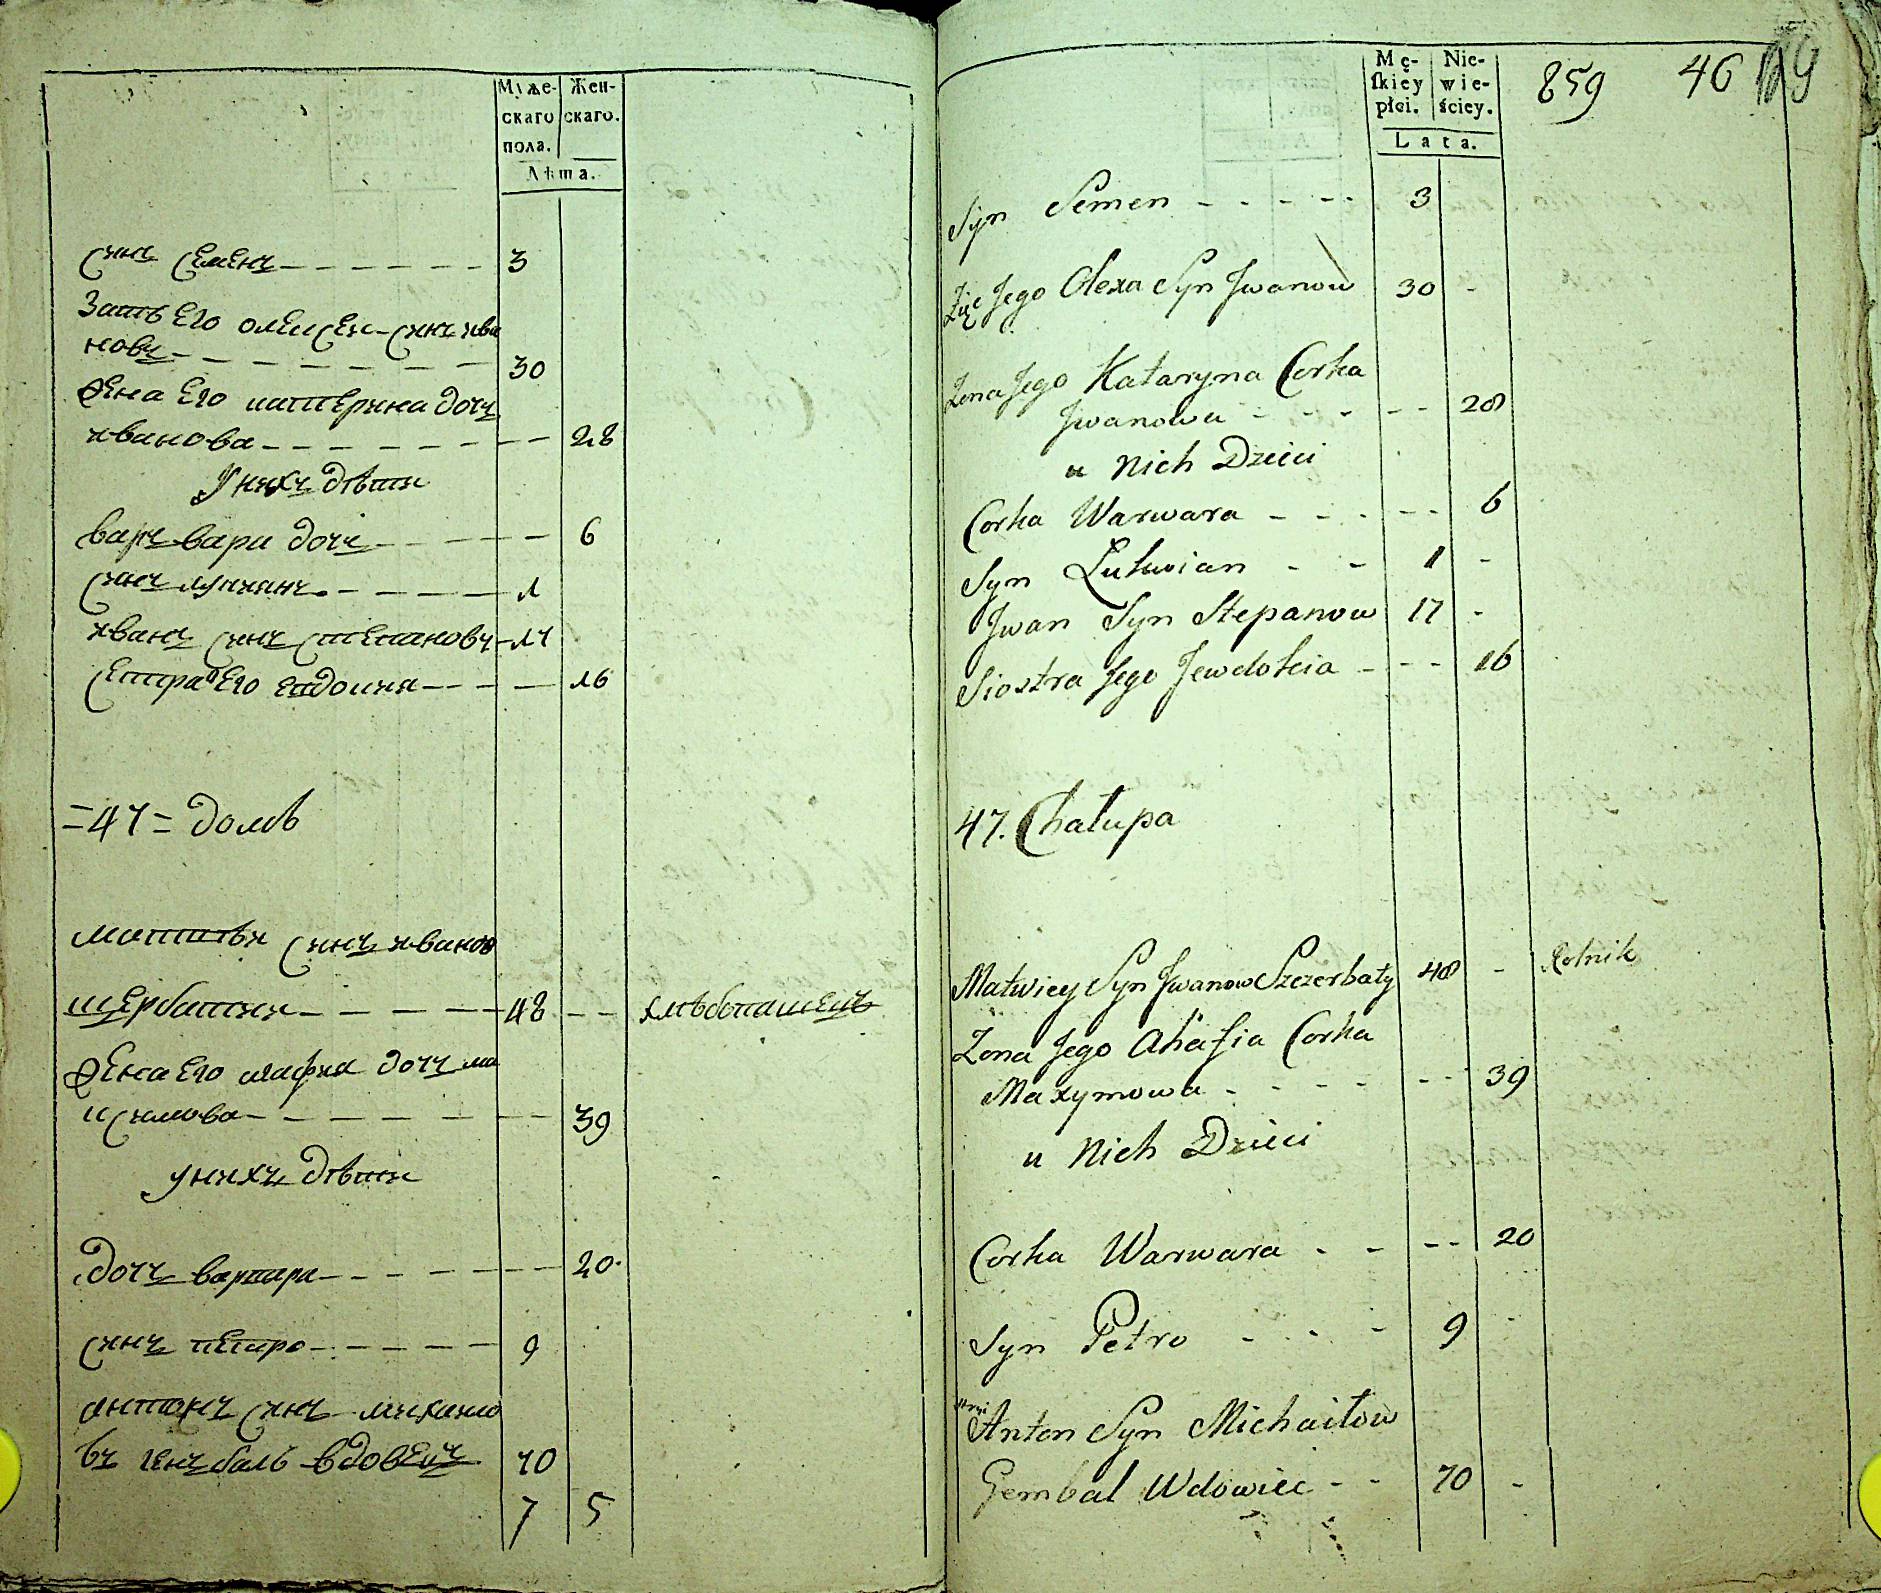 Муже-
скаго
пола.
Жен-
скаго.
Лѣта.
синъ семенъ 3
Зать его олексей синъ ива
новъ 30
жена его катерина дочъ
иванова 28
у нихъ дѣти
варъвара дочъ 6
синъ лукианъ 1
иванъ синъ степановъ 17
сестра его евдокия 16
=47= домъ
матвѣй синъ иванов
щербатий 48 хлѣбопашецъ
жена его агафия дочъ ма
ксимова 39
у нихъ дѣти
дочъ варвара 20
синъ петро 9
антонъ синъ михайло
въ генъбалъ вдовецъ 70
7 5
Mę-
skiey
płci.
Nie-
wie-
ściey.
Lata.
859 46
Syn Semen 3
Zięć Jego Olexa Syn Jwanow 30
Zona Jego Kataryna Corka
Jwanowa 28
u Nich Dzieci
Corka Warwara 6
Syn Lukwian 1
Jwan Syn Stepanow 17
Siostra Jego Jewdokia 16
47. Chałupa
Matwiey Syn Jwanow Szczerbaty 48 Rolnik
Zona Jego Ahafia Corka
Maxymowa 39
u Nich Dzieci
Corka Warwara 20
Syn Petro 9
Anton Syn Michaiłow
Gembal Wdowiec 70